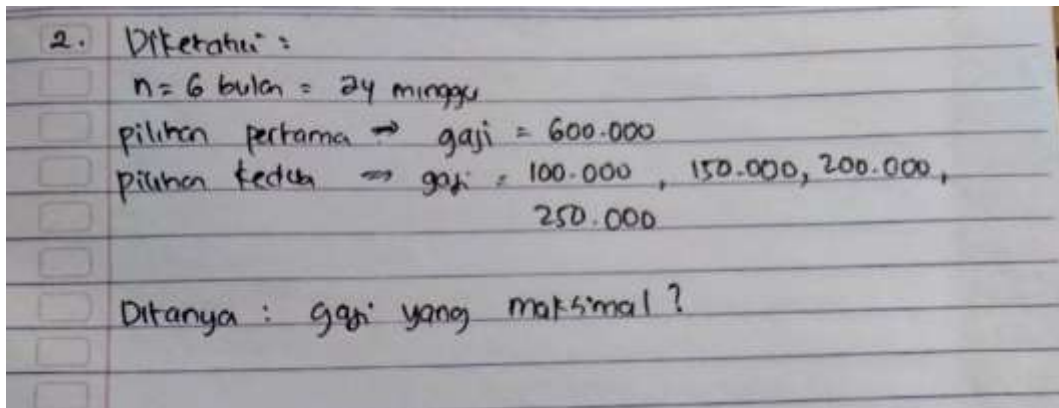 2. Diketahui :
n = 6 bulan = 24 minggu
pilihan pertama → gaji = 600.000
pilihan kedua → gaji = 100.000 , 150.000, 200.000,
250.000
Ditanya : gaji yang maksimal ?